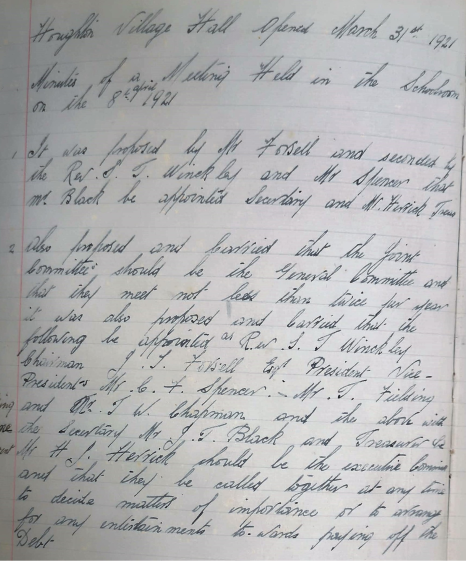 Houghton Village Hall Opened March 31st 1921
Minutes of a Meeting Held in the Schoolroom
on the 8th April 1921
1 It was proposed by Mr Forsell and seconded by
the Rev. S. T. Winckley and Mr Spencer that
Mr Black be appointed Secretary and Mr Herrick Treas
2 also proposed and Carried that the Joint
Committee should be the General Committee and
that they meet not less than twice per year
it was also proposed and Carried that the
following be appointed as Rev. S. T. Winckley
Chairman J. T. Forsell Esq President Vice-
Presidents Mr C. F. Spencer - Mr T. Fielding
and Mr T. W. Chapman and the above with
the Secretary Mr J. T. Black and Treasurer
Mr H. J. Herrick should be the executive Commi
and that they be called together at any time
to decide matters of importance or to arrange
for any entertainments to-wards paying off the
Debt